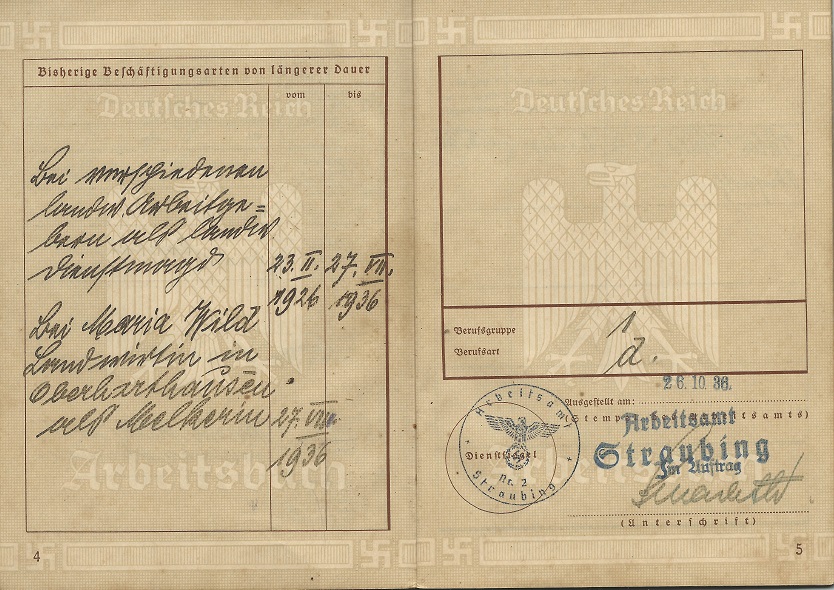 Bisherige Beschäftigungsarten von längerer Dauer
vom
bis
Deutsches Reich
Bei verschiedenen
landw. Arbeitge=
bern als landw.
Dienstmagd
23. II. 1926
27. VII. 1936
Bei Maria Wild
Landwirtin in
Oberharthausen
als Melkerin
27. VII. 1936
Arbeitsbuch
4
Deutsches Reich
Berufsgruppe 1
Berufsart d.
Ausgestellt am: 26.10.36.
Arbeitsamt
Straubing
Im Auftrag
(Unterschrift)
Arbeitsamt
Dienstsiegel
Nr. 2
Straubing
5